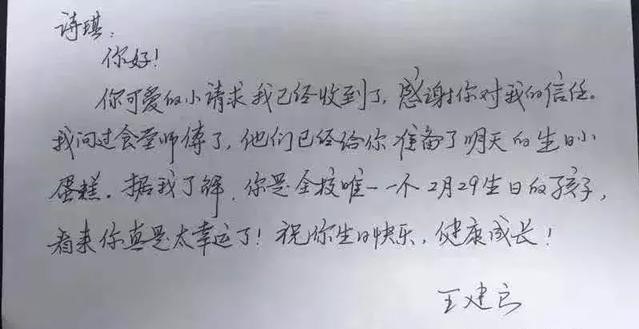 诗琪:
你好!
你可爱的小请求我已经收到了,感谢你对我的信任。
我问过食堂师傅了,他们已经给你准备了明天的生日小
蛋糕。据我了解,你是全校唯一一个2月29生日的孩子,
看来你真是太幸运了!祝你生日快乐,健康成长!
王建